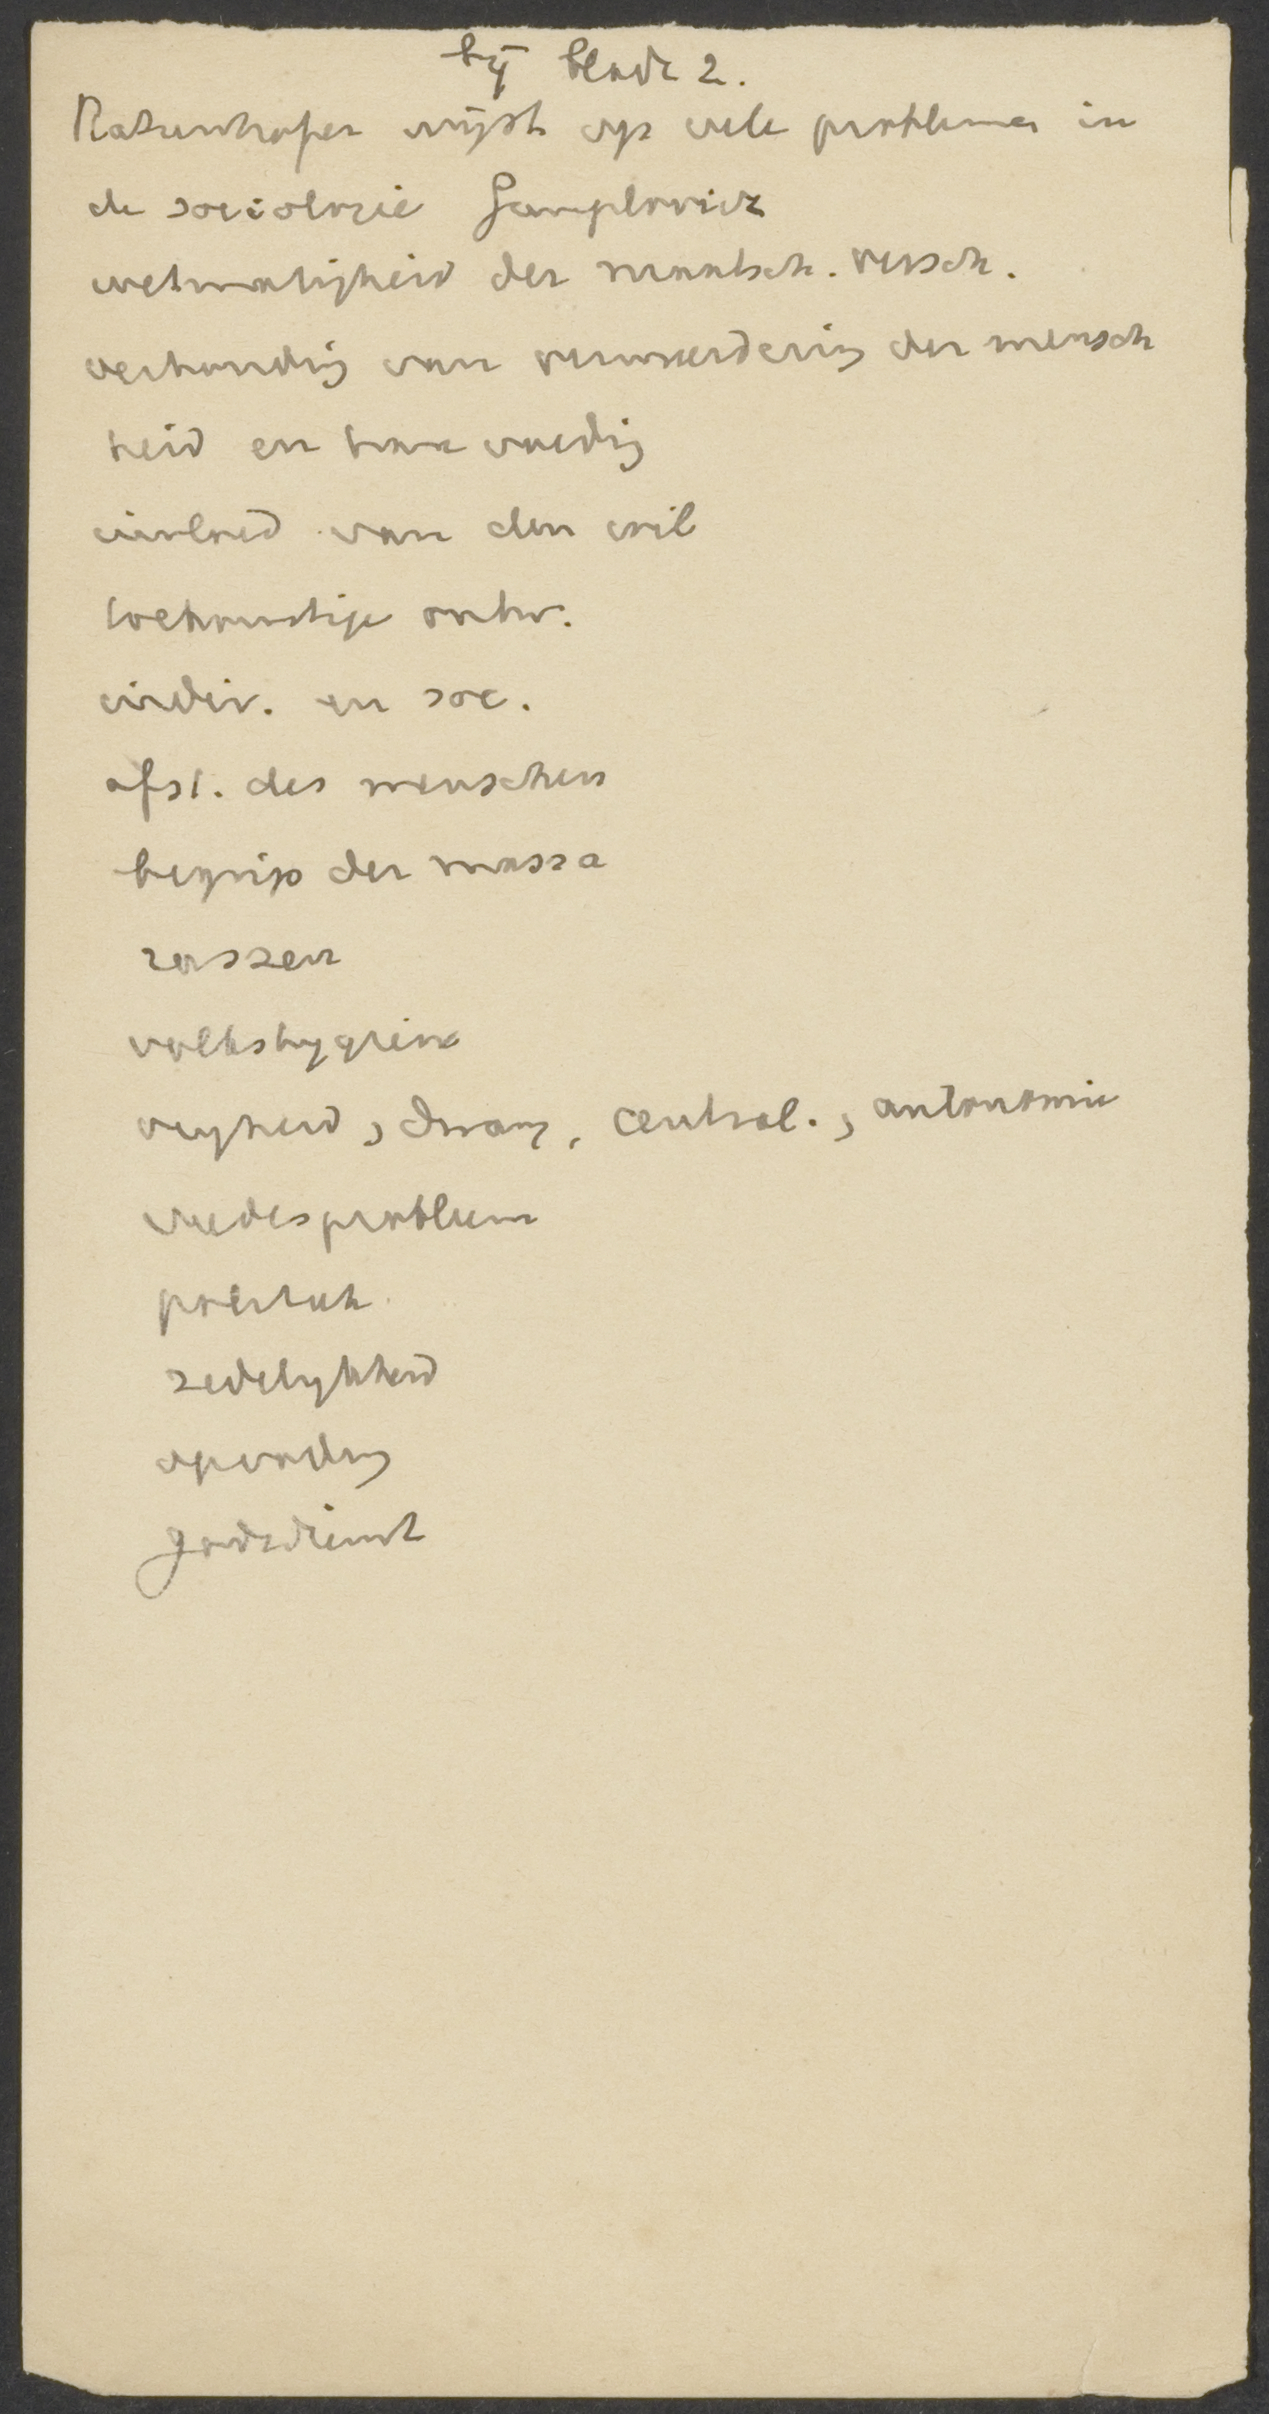 bij bladz 2.
Ratzenhofer wijst op vele problemen in
de sociologie Gumplovicz
wetmatigheid der maatsch. versch.
verhouding van vermeerdering der mensch
heid en haar voeding
invloed van den wil
toekomstige ontw.
indiv. en soc.
afst. des menschen
begrip der massa
rassen
volkshygiene
vryheid, dwang, central., autonomie
vredesprobleem
politiek
zedelykheid
opvoeding
godsdienst